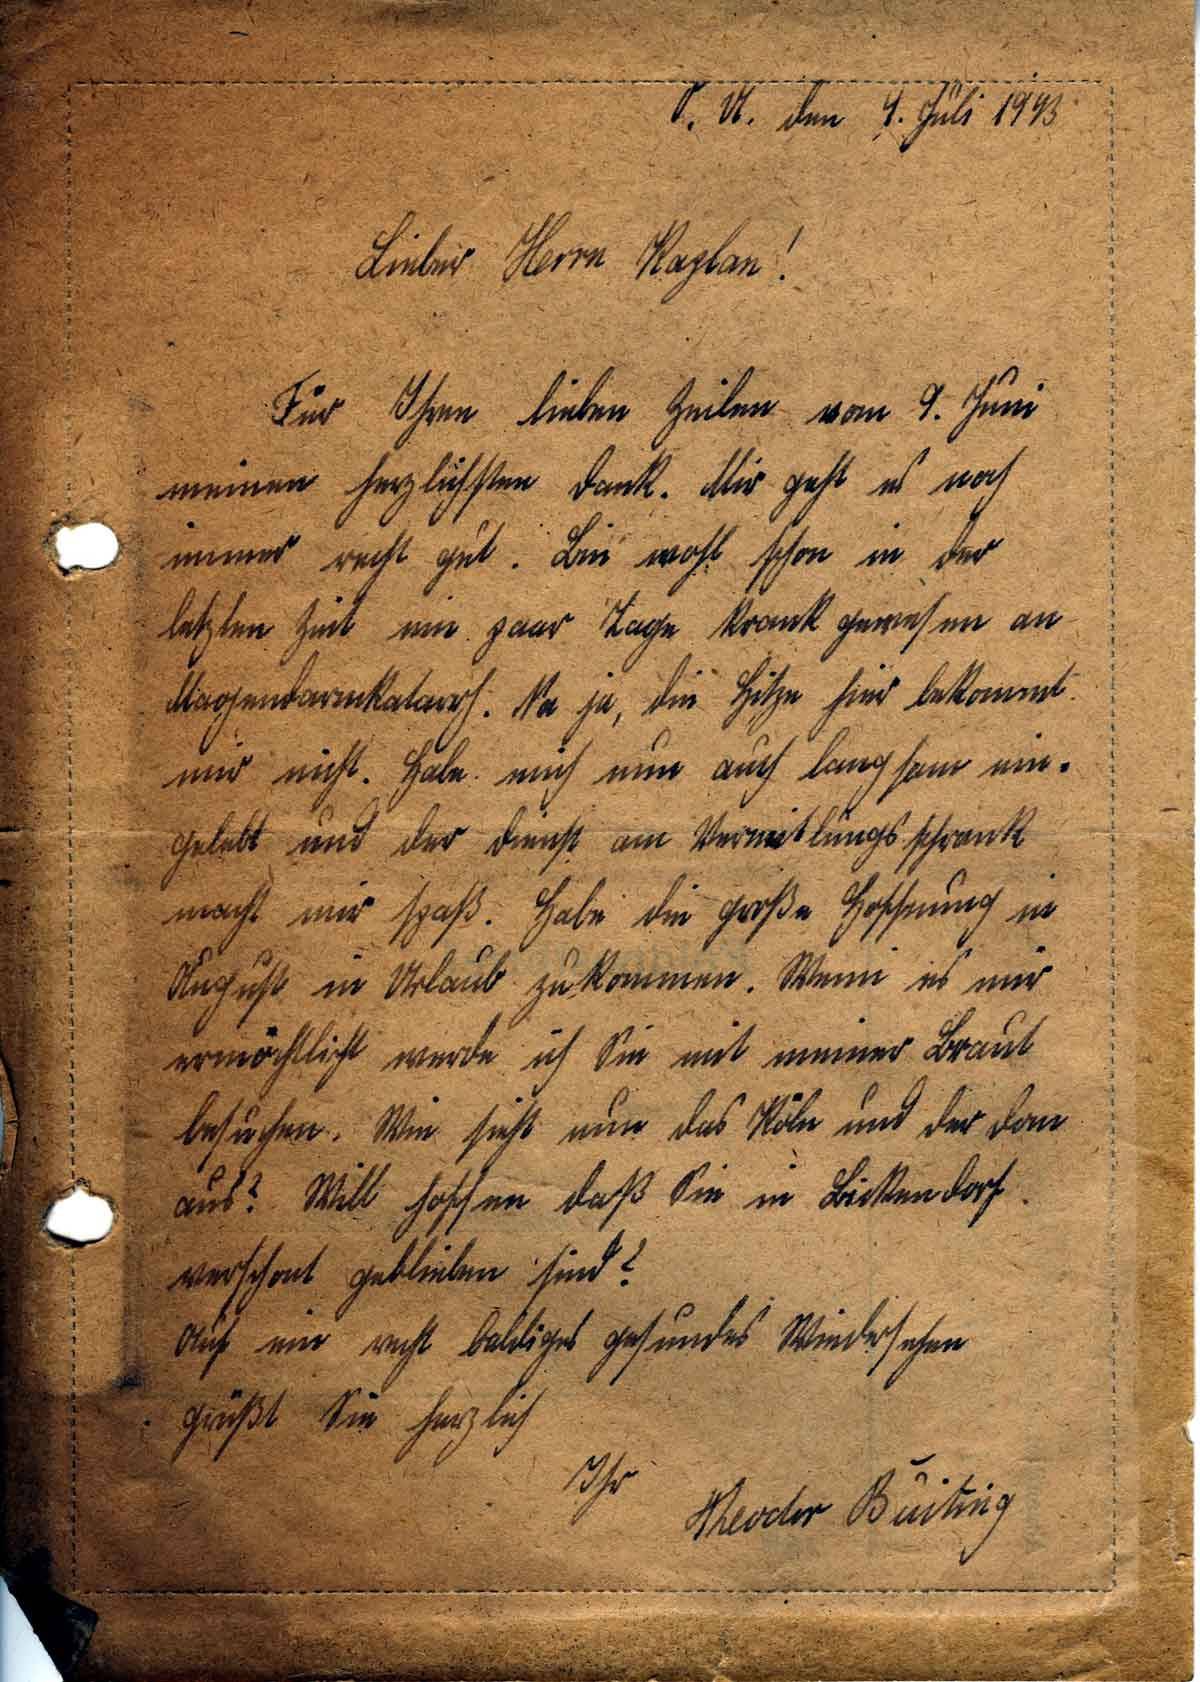 O. U. den 4. Juli 1943
Lieber Herrn Kaplan!
Für Ihren lieben Zeilen vom 9. Juni
meinen herzlichsten Dank. Mir geht es noch
immer recht gut. Bin wohl schon in der
letzten Zeit ein paar Tage krank gewesen an
Magendarmkatarrh. Na ja, die Hitze hier bekommt
mir nicht. Habe mich nun auch langsam ein-
gelebt und der Dienst am Vermitlungsschrank
macht mir spaß. Habe die große Hoffnung in
August in Urlaub zu kommen. Wenn es mir
ermöchtlicht werde ich Sie mit meiner Braut
besuchen. Wie sieht nun das Köln und der Dom
aus? Will hoffen daß Sie in Bickendorf
verschont geblieben sind?
Auf ein recht baldiges gesundes Wiedersehen
grüßt Sie herzlich
Ihr
Theodor Büiting